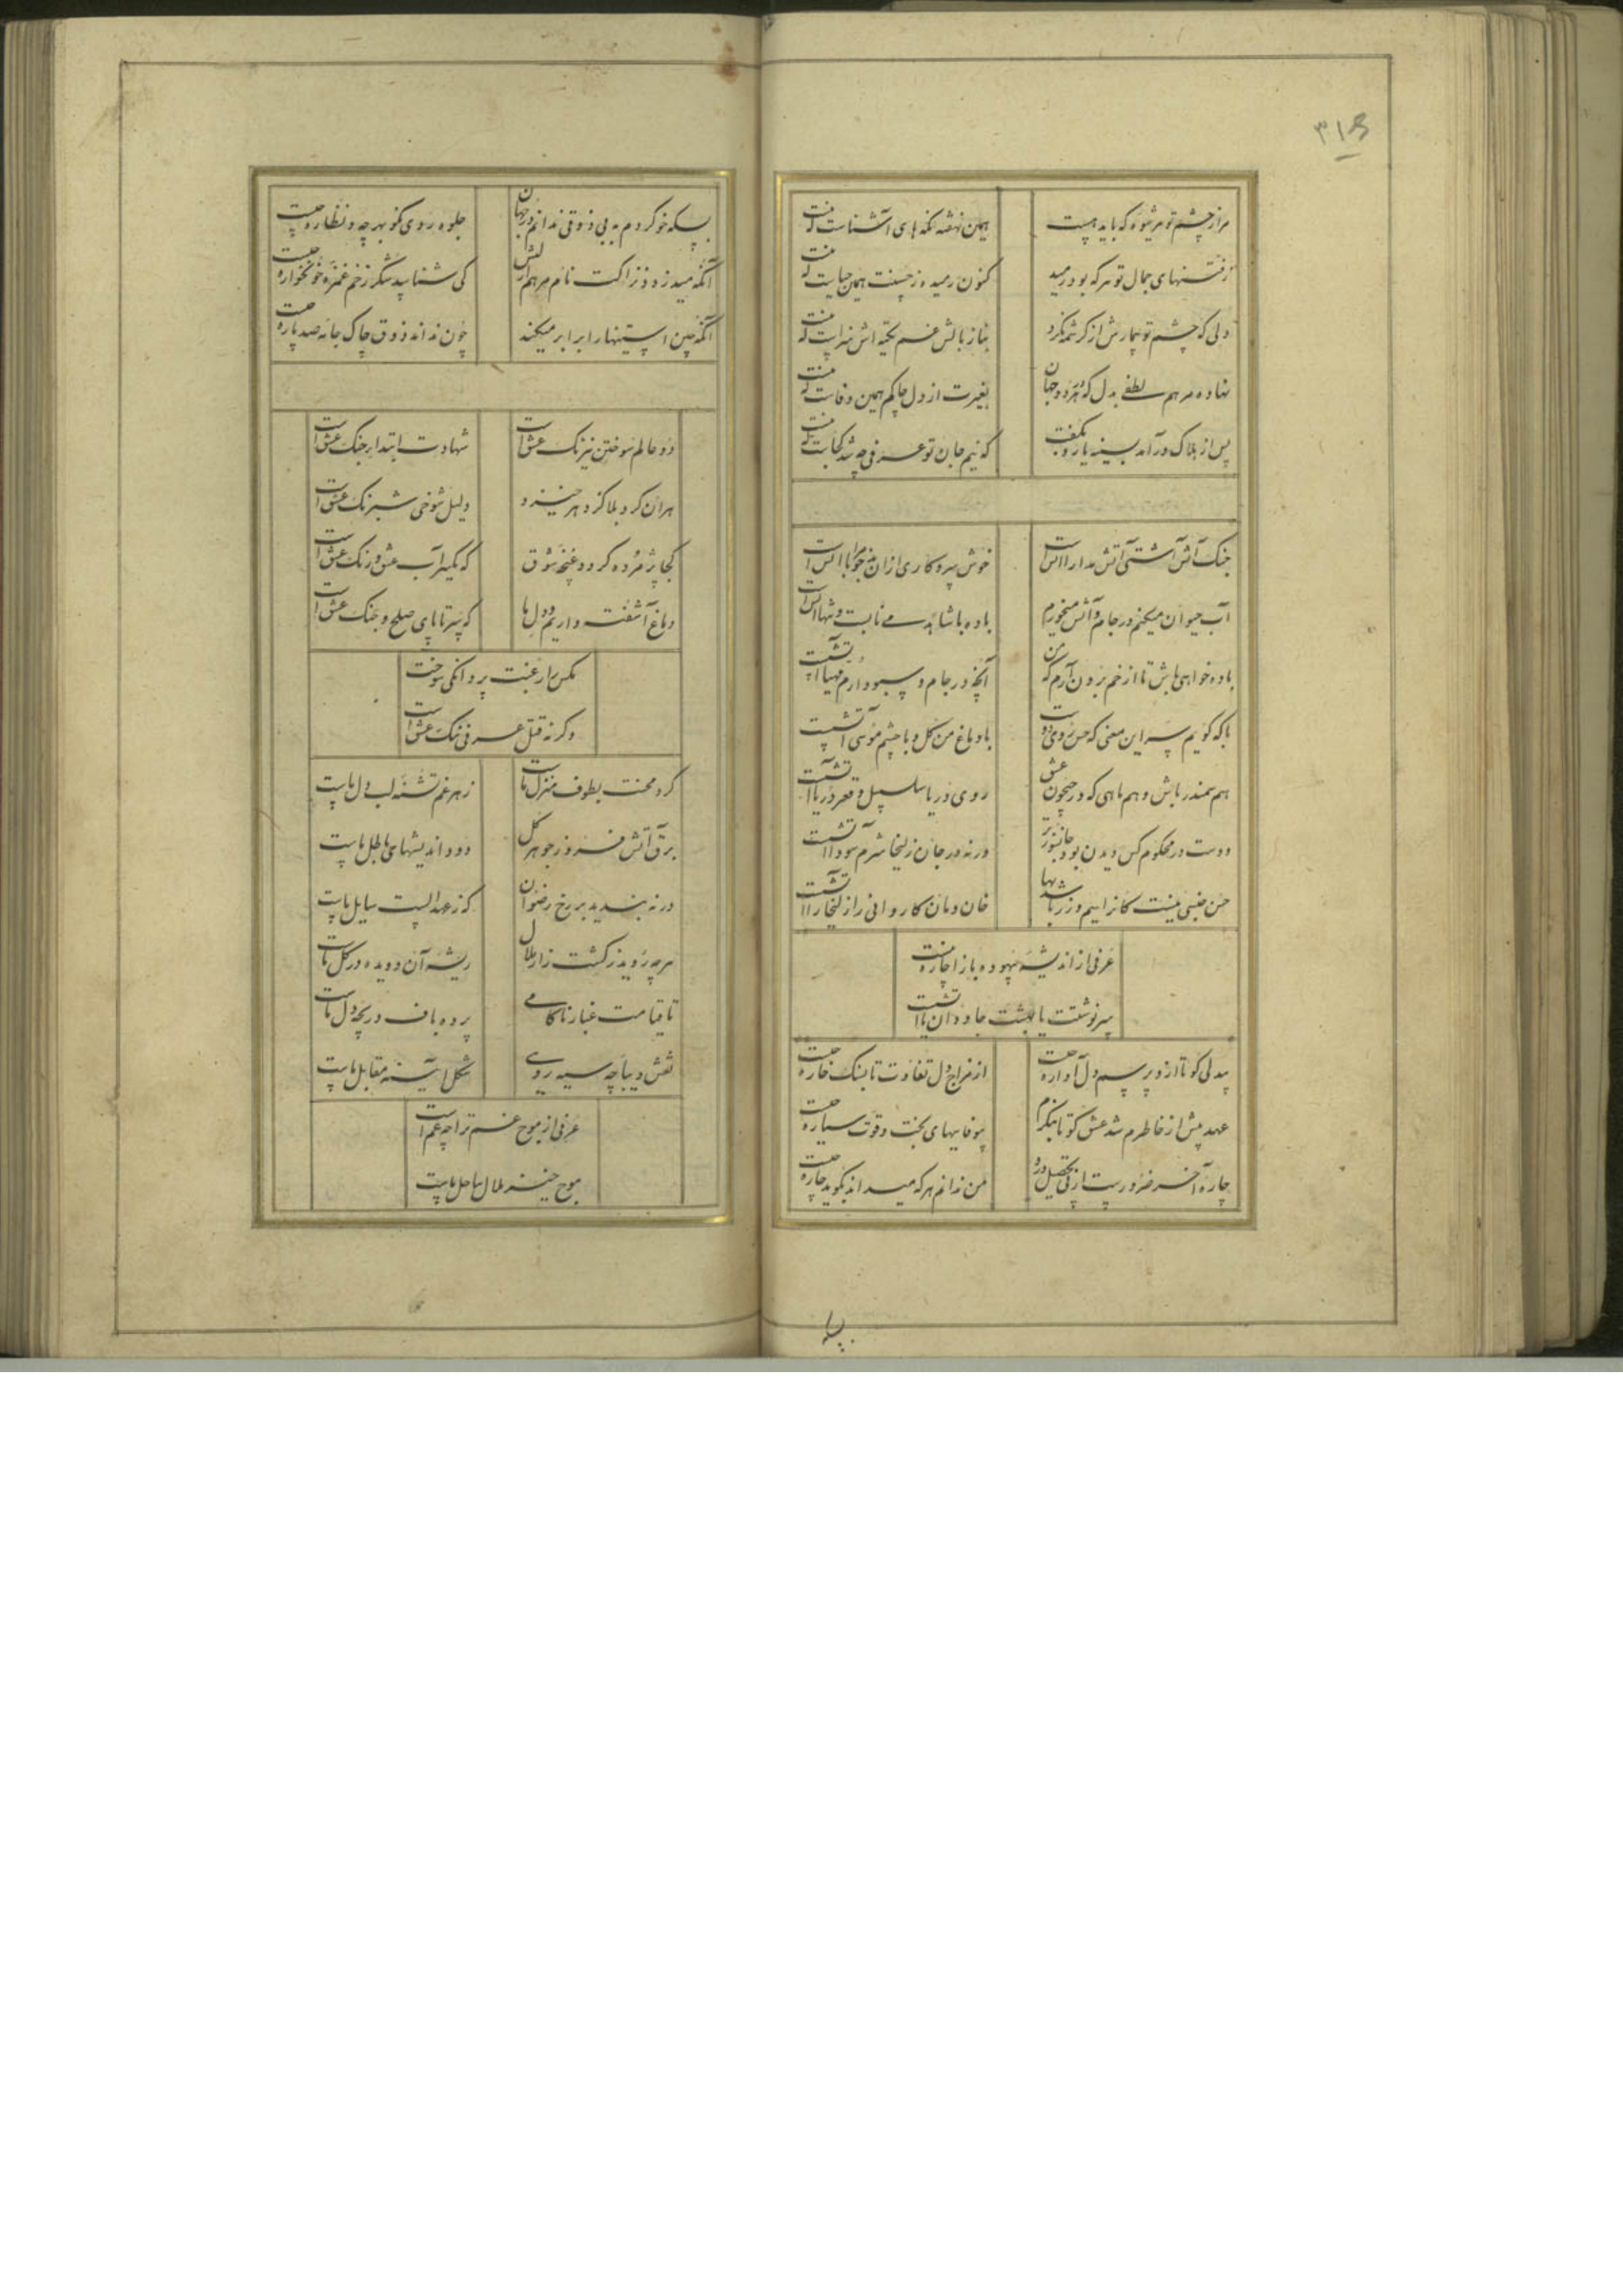 ۳۱۶
مرا ز چشم تو هر شیوه که باید هست همین نهفته نگه های آشناست که نیست
ز فتنهای جمال تو هر که بود رمید کنون رمیده ز حسنت همین حیاست که نیست
دلی که چشم تو بیمارش از کرشمه نکرد بناز بالش غم تکیه اش سزاست که نیست
نهاده مرهم لطفی بدل که در دو جهان بغیرت از دل چاکم همین وفاست که نیست
پس از هلاک در آمد بسینه یار و بگفت که نیم جان تو عرفی چه شد کجاست که نیست
جنگ آتش آشتی آتش مدارا آتش است خوش سر و کاری از ان بدخو مرا با آتش است
آب حیوان میکنم در جام و آتش میخورم باده با شاهد می نابست و تنها آتش است
باده خواهی باش تا از خم برون آرم که من آنچه در جام و سبو دارم مهیا آتشست
با که گویم سر این معنی که حسن روی دوست با دماغ من گل و با چشم موسی آتشست
هم سمندر باش و هم ماهی که در جیحون عشق روی دریا سلسبیل و قعر دریا آتشست
دوست در محکوم کس دیدن بود جانسوزتر ورنه در جان زلیخا شرم سودا آتشست
حسن جنسی نیست کانرا سیم و زر باشد بها خان و مان کاروانی را زلیخا آتشست
عرفی از اندیشه بیهوده باز آ چاره نیست
سرنوشتت یا بهشت جاودان یا آتشست
بیدلی کو تا ازو پرسم دل آواره چیست از مزاج دل تفاوت تا بسنگ خاره چیست
عهد پیش از خاطرم شد عشق کو تا بنگرم بیوفاییهای بخت و قوت سیاره چیست
چاره آخر ضرورست از پی تحصیل درد من ندانم هر که میداند بگوید چاره چیست
بسکه
بسکه خو کردم به بی ذوقی ندانم در جهان جلوه روی نکو بهر چه و نظاره چیست
آنکه میزد از نزاکت نام مرهم لبش کی شناسد شکر زخم غمزه خونخواره چیست
آنکه چین آستینها را برابر میکند چون نداند ذوق چاک جامه صد پاره چیست
دو عالم سوختن نیرنگ عشق است شهادت ابتدای جنگ عشق است
هر آن کرد بلا کز دهر خیزد دلیل شوخی شبرنگ عشق است
کجا پژمرده گردد غنچه شوق که یکسر آب عشق و رنگ عشق است
دماغ آشفته داریم و دل ما که سر تا پای صلح و جنگ عشق است
مگس را رغبت پروانگی سوخت
وگرنه قتل عرفی ننگ عشق است
گرد محنت بطوف منزل ماست زهر غم تشنه لب دل ماست
برق آتش فروز جوهر گل دود اندیشهای باطل ماست
در نه بندید بر رخ رضوان که ز عهد الست سایل ماست
هر چه روید ز کشت زار ملال ریشه آن دویده در گل ماست
تا قیامت غبار ناکامی پرده باف دریچه دل ماست
نقش دیباچه سیه رویی شکل آیینه مقابل ماست
عرفی از موج غم ترا چه غم است
موج خیز ملال ساحل ماست